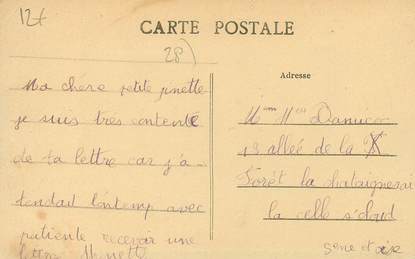 12f
CARTE POSTALE
28)
Ma chère petite ginette
je suis très contente
de ta lettre car j'a-
tendait lontemp avec
patiente recevoir une
lettre
Adresse
13 allée de la
Forêt la chataignerai
la celle st cloud
Seine et oise